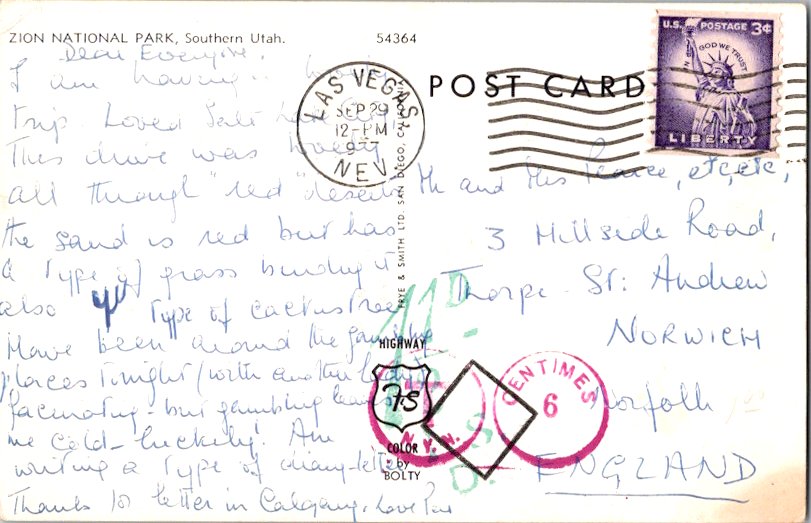 ZION NATIONAL PARK, Southern Utah.
54364
Dear Everyone,
I am having
trip Loved Salt Lake City
This drive was lovely
all through "red" deserts
the sand is red but has
a type of grass binding it
also type of cactus tree
Have been around the gambling
places tonight (with another lady)
facinating - but gambling leaves
me cold - luckily! Am
writing a type of diary-letter
Thanks for letter in Calgary, Love
FRYE & SMITH LTD. SAN DIEGO, CALIFORNIA
HIGHWAY
75
COLOR
by
BOLTY
POST CARD
LAS VEGAS,
SEP 29
12-PM
NEV.
U.S. POSTAGE 3¢
IN GOD WE TRUST
LIBERTY
Mr and Mrs Pearce, etc, etc,
3 Hillside Road,
Thorpe St: Andrew
NORWICH
Norfolk
ENGLAND
N.Y.N.
CENTIMES
6